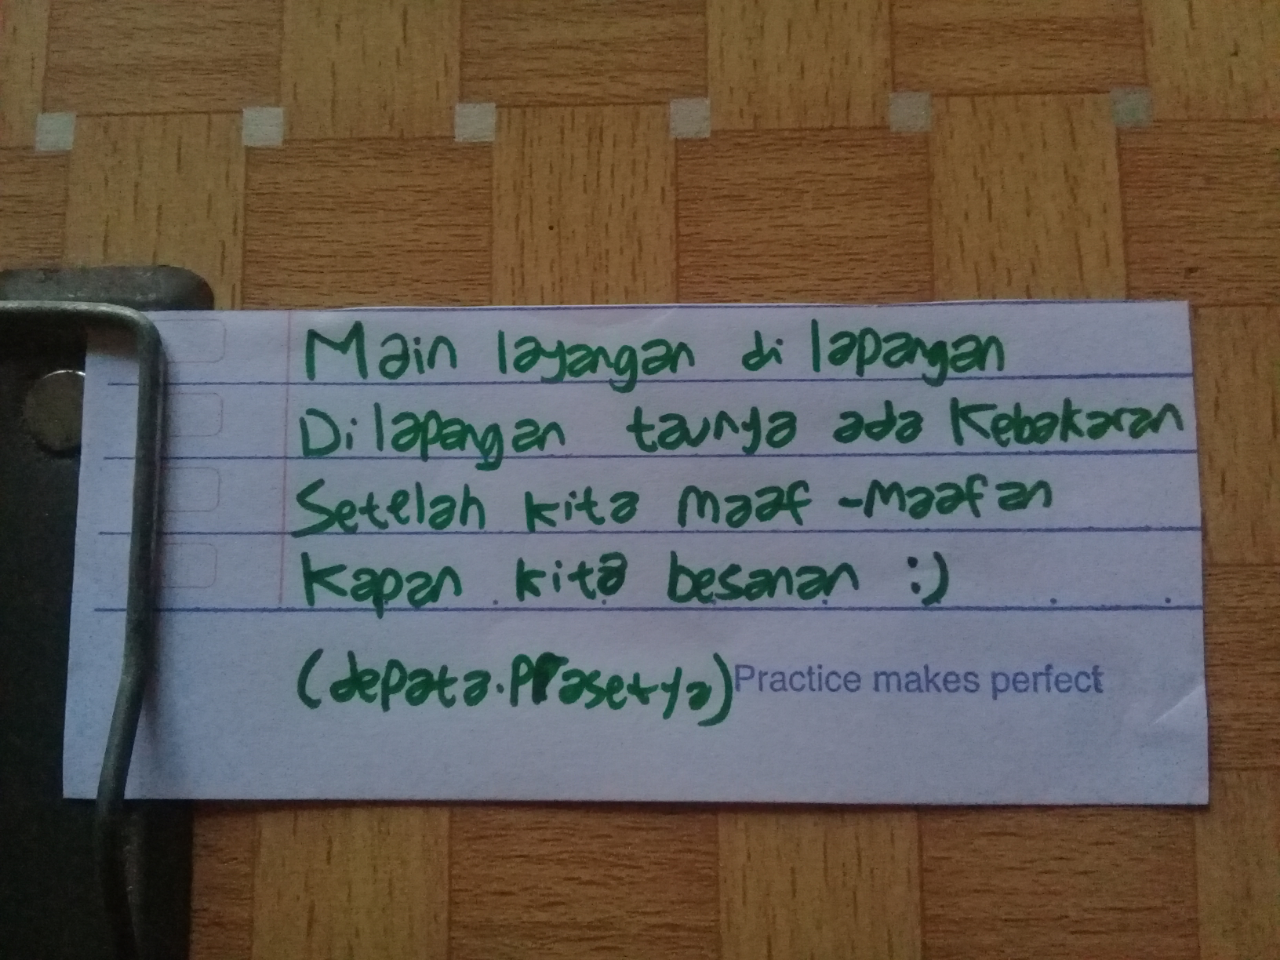 Main layangan di lapangan
Di lapangan taunya ada Kebakaran
Setelah kita maaf-Maafan
Kapan kita besanan :)
(depata.Prasetya) Practice makes perfect